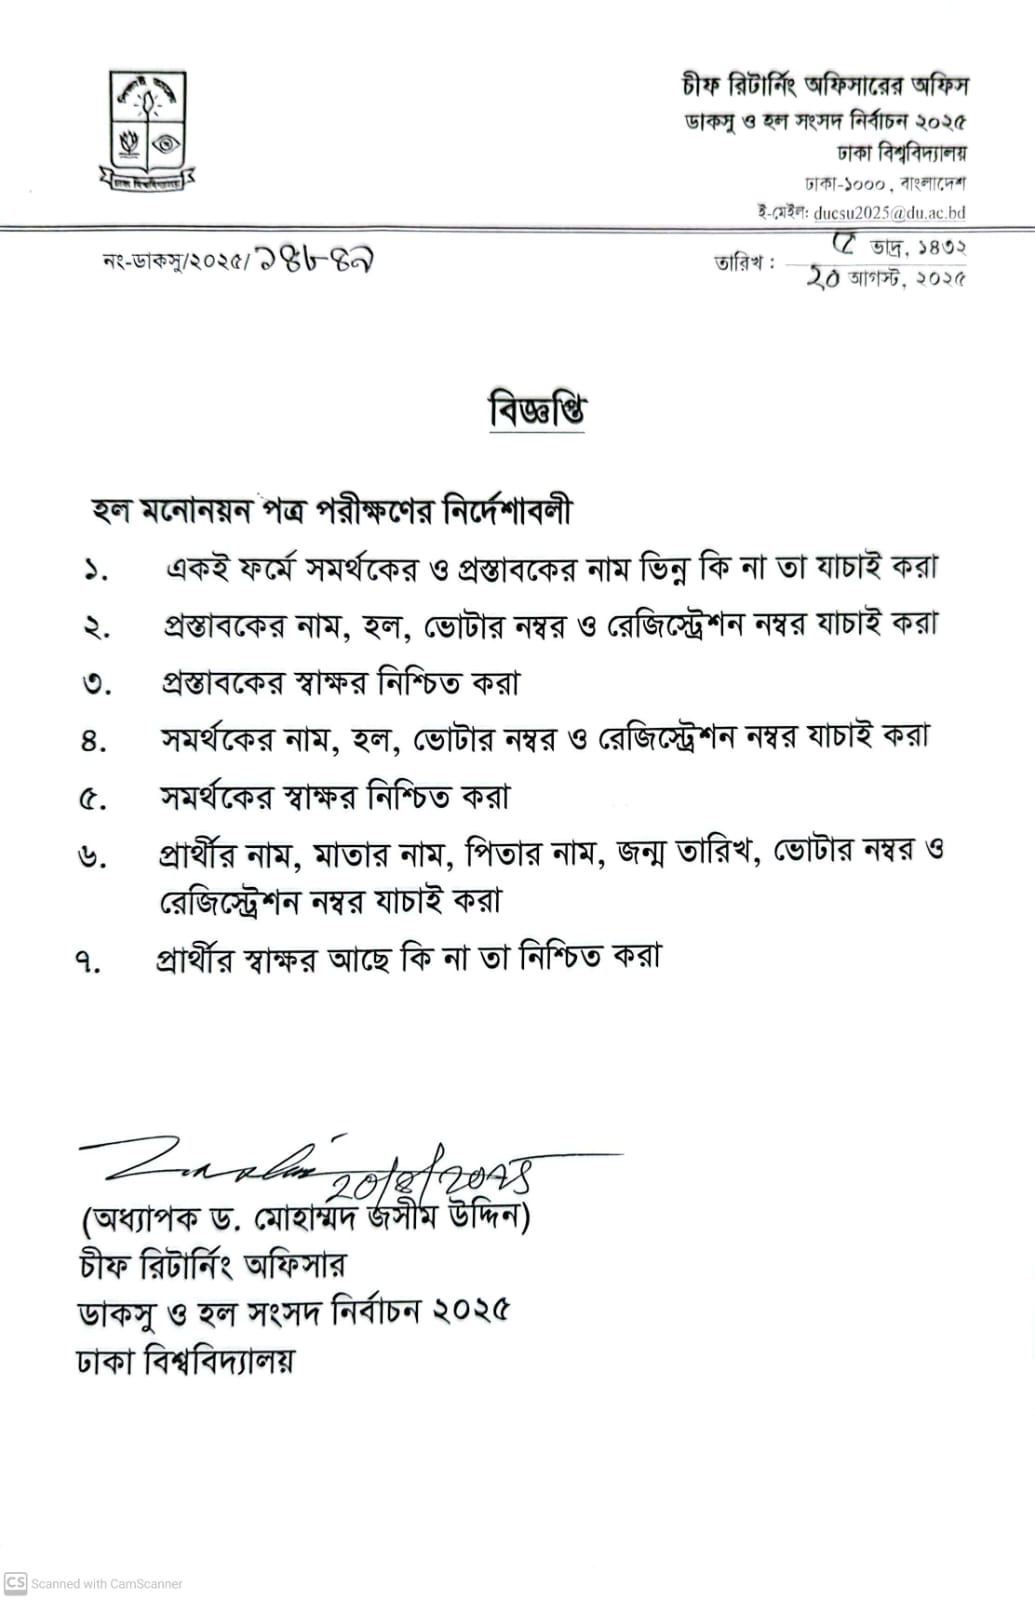 চীফ রিটার্নিং অফিসারের অফিস
ডাকসু ও হল সংসদ নির্বাচন ২০২৫
ঢাকা বিশ্ববিদ্যালয়
ঢাকা-১০০০, বাংলাদেশ
ই-মেইল: ducsu2025@du.ac.bd
নং-ডাকসু/২০২৫/১৪৮৪৯
তারিখ : ৫ ভাদ্র, ১৪৩২
২০ আগস্ট, ২০২৫
বিজ্ঞপ্তি
হল মনোনয়ন পত্র পরীক্ষণের নির্দেশাবলী
১. একই ফর্মে সমর্থকের ও প্রস্তাবকের নাম ভিন্ন কি না তা যাচাই করা
২. প্রস্তাবকের নাম, হল, ভোটার নম্বর ও রেজিস্ট্রেশন নম্বর যাচাই করা
৩. প্রস্তাবকের স্বাক্ষর নিশ্চিত করা
৪. সমর্থকের নাম, হল, ভোটার নম্বর ও রেজিস্ট্রেশন নম্বর যাচাই করা
৫. সমর্থকের স্বাক্ষর নিশ্চিত করা
৬. প্রার্থীর নাম, মাতার নাম, পিতার নাম, জন্ম তারিখ, ভোটার নম্বর ও
রেজিস্ট্রেশন নম্বর যাচাই করা
৭. প্রার্থীর স্বাক্ষর আছে কি না তা নিশ্চিত করা
২০/৮/২০২৫
(অধ্যাপক ড. মোহাম্মদ জসীম উদ্দিন)
চীফ রিটার্নিং অফিসার
ডাকসু ও হল সংসদ নির্বাচন ২০২৫
ঢাকা বিশ্ববিদ্যালয়
CS Scanned with CamScanner